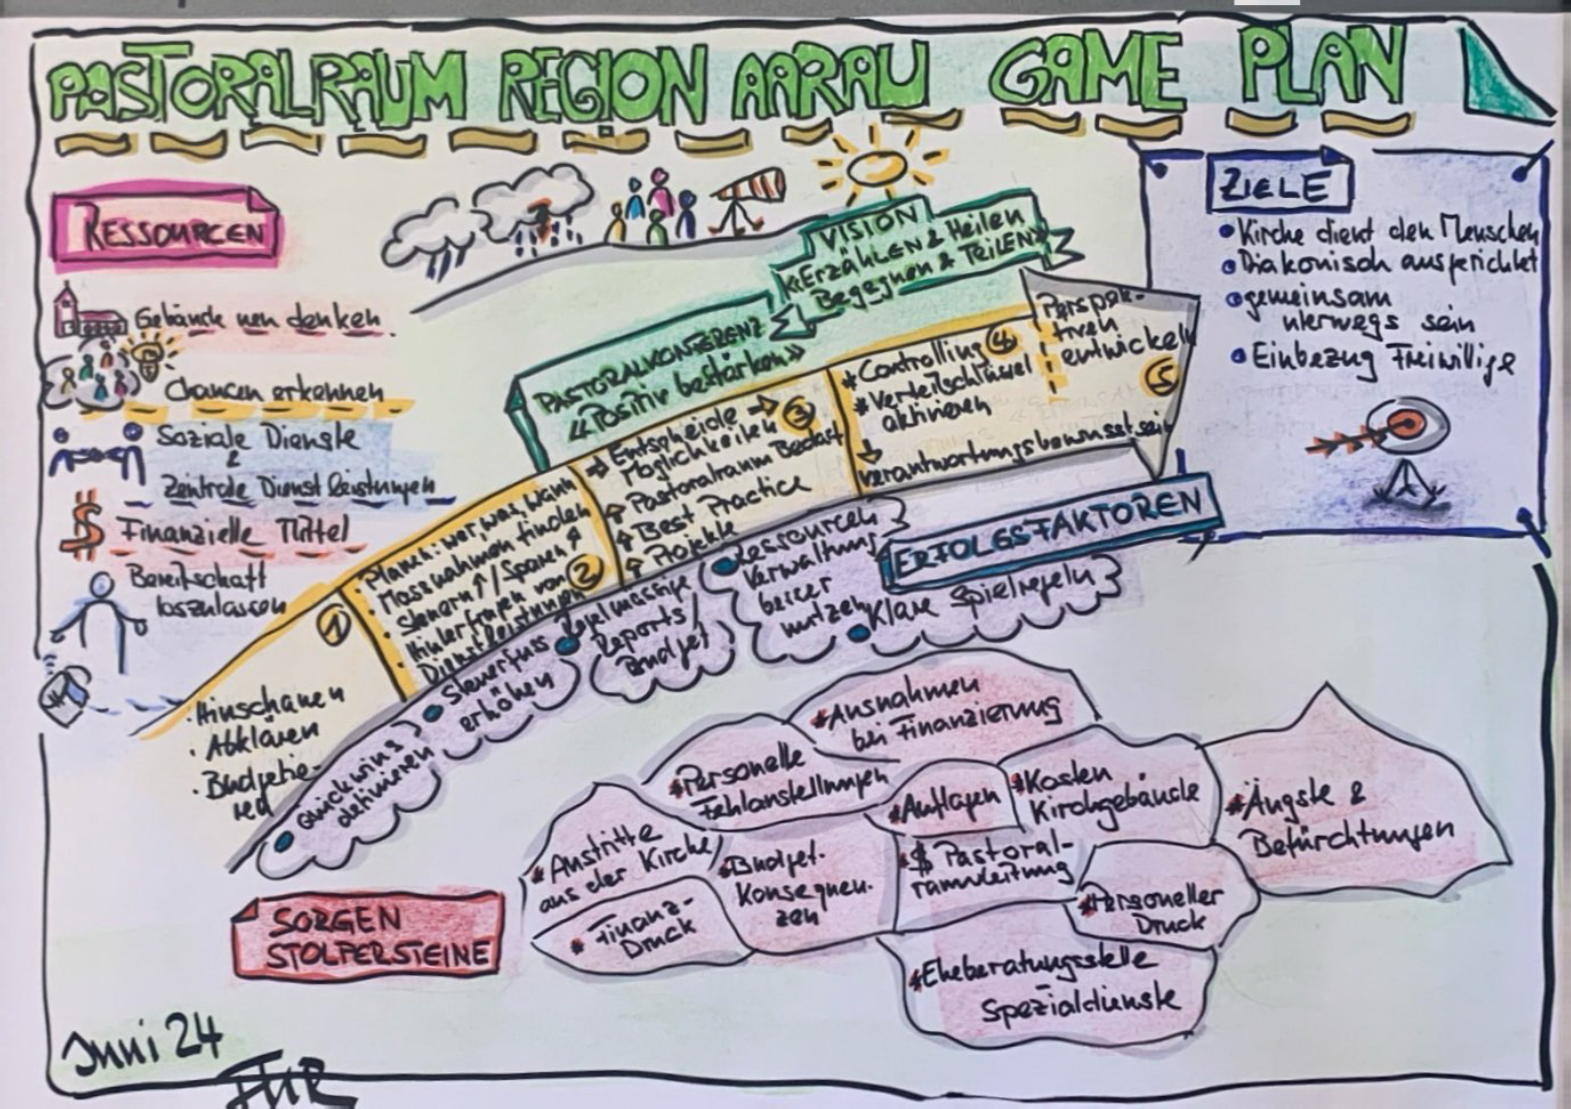 PASTORALRAUM REGION AARAU GAME PLAN
RESSOURCEN
Gebäude neu denken
Chancen erkennen
Soziale Dienste
&
Zentrale Dienstleistungen
$ Finanzielle Mittel
Bereitschaft
loszulassen
VISION
«Erzählen & Heilen
Begegnen & Teilen»
PASTORALKONFERENZ
«Positiv bestärken»
ZIELE
• Kirche dient den Menschen
• Diakonisch ausgerichtet
• gemeinsam
unterwegs sein
• Einbezug Freiwillige
1
• Hinschauen
• Abklären
• Budgetie-
ren
2
• Planen: wer, was, wann
• Massnahmen finden
• Steuern↑/Sparen
• Hinterfragen von
Dienstleistungen
3
Entscheide →
Möglichkeiten
Pastoralraum Bedarf
Best Practice
Projekte
4
* Controlling
* Verteilschlüssel
aktivieren
↓
verantwortungsbewusst sein
Perspek-
tiven
entwickeln
5
ERFOLGSFAKTOREN
• Quickwins
definieren
• Steuerfuss
erhöhen
• Regelmässige
Reports/
Budget
• Ressourcen
Verwaltung
besser
nutzen
• Klare Spielregeln
SORGEN
STOLPERSTEINE
* Austritte
aus der Kirche
* Finanz-
Druck
* Personelle
Fehlanstellungen
* Budget-
Konsequen-
zen
* Ausnahmen
bei Finanzierung
* Auflagen
* Kosten
Kirchgebäude
* $ Pastoral-
raumleitung
* Personeller
Druck
* Eheberatungsstelle
Spezialdienste
* Ängste &
Befürchtungen
Juni 24